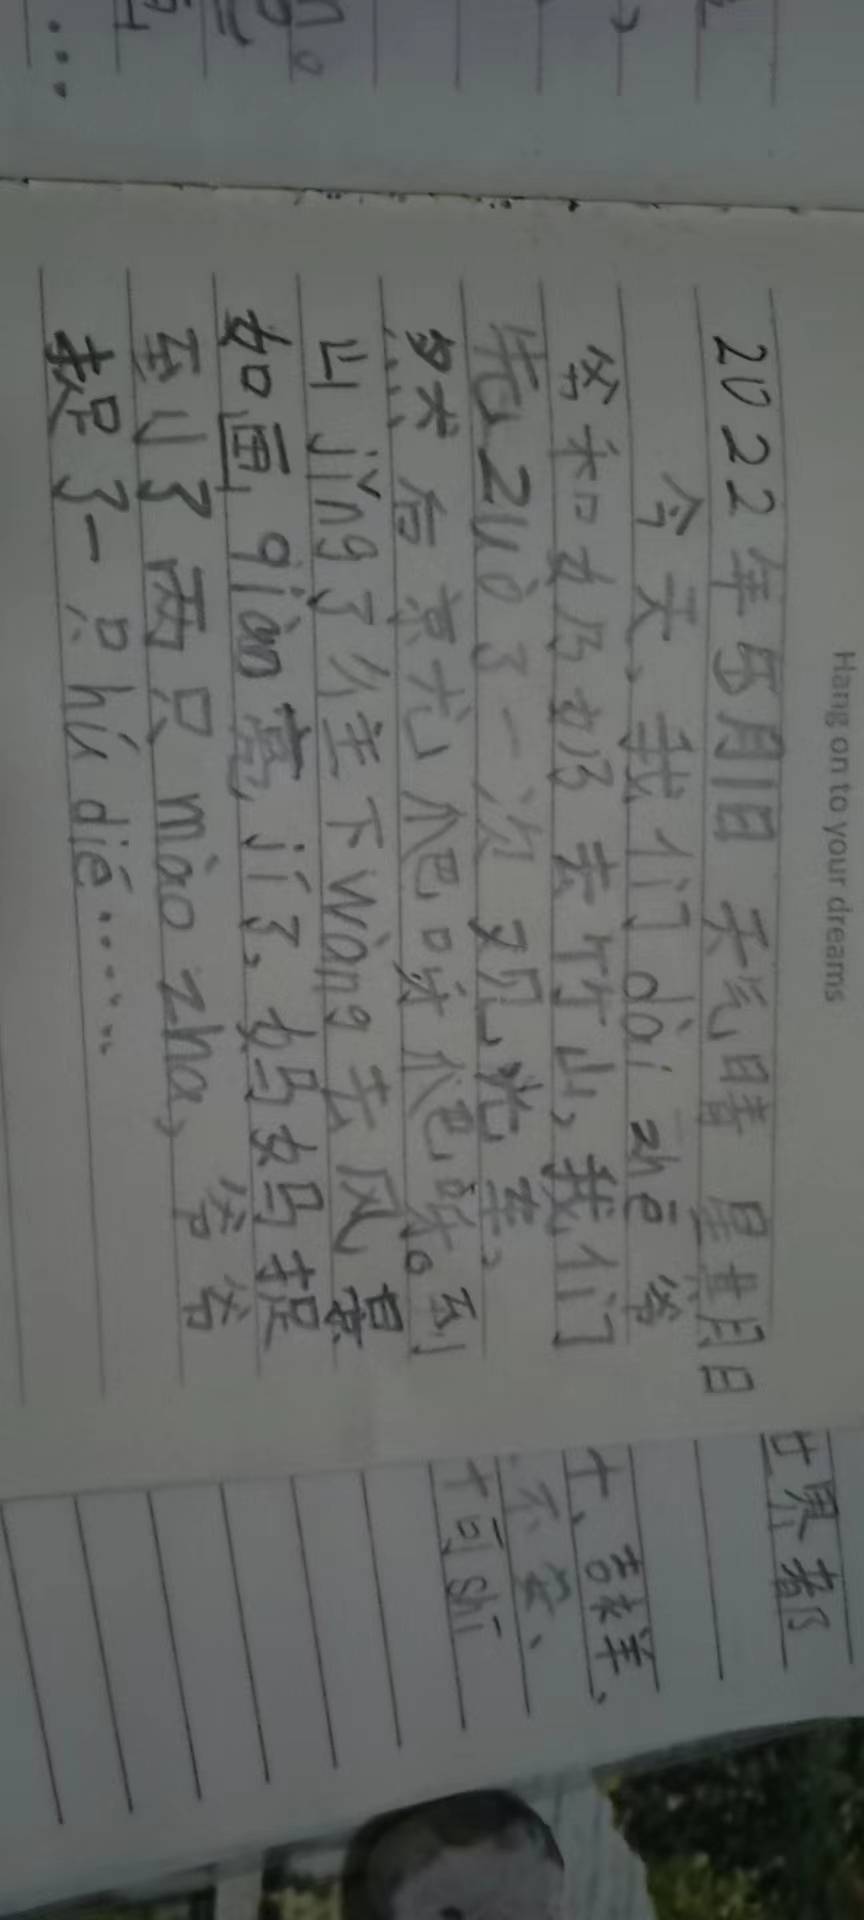 Hang on to your dreams
2022年5月1日 天气晴 星期日
今天、我们dài zhe爷
爷和奶奶去竹山、我们
先zuò了一次观光车、
然后就爬呀爬呀。到
山jǐng了
往下wàng去风景
如画 qiàn亮jí了、妈妈捉
到了两只mào zha、爷爷
捉了一只hú dié……
世界都
吉祥、
可shī